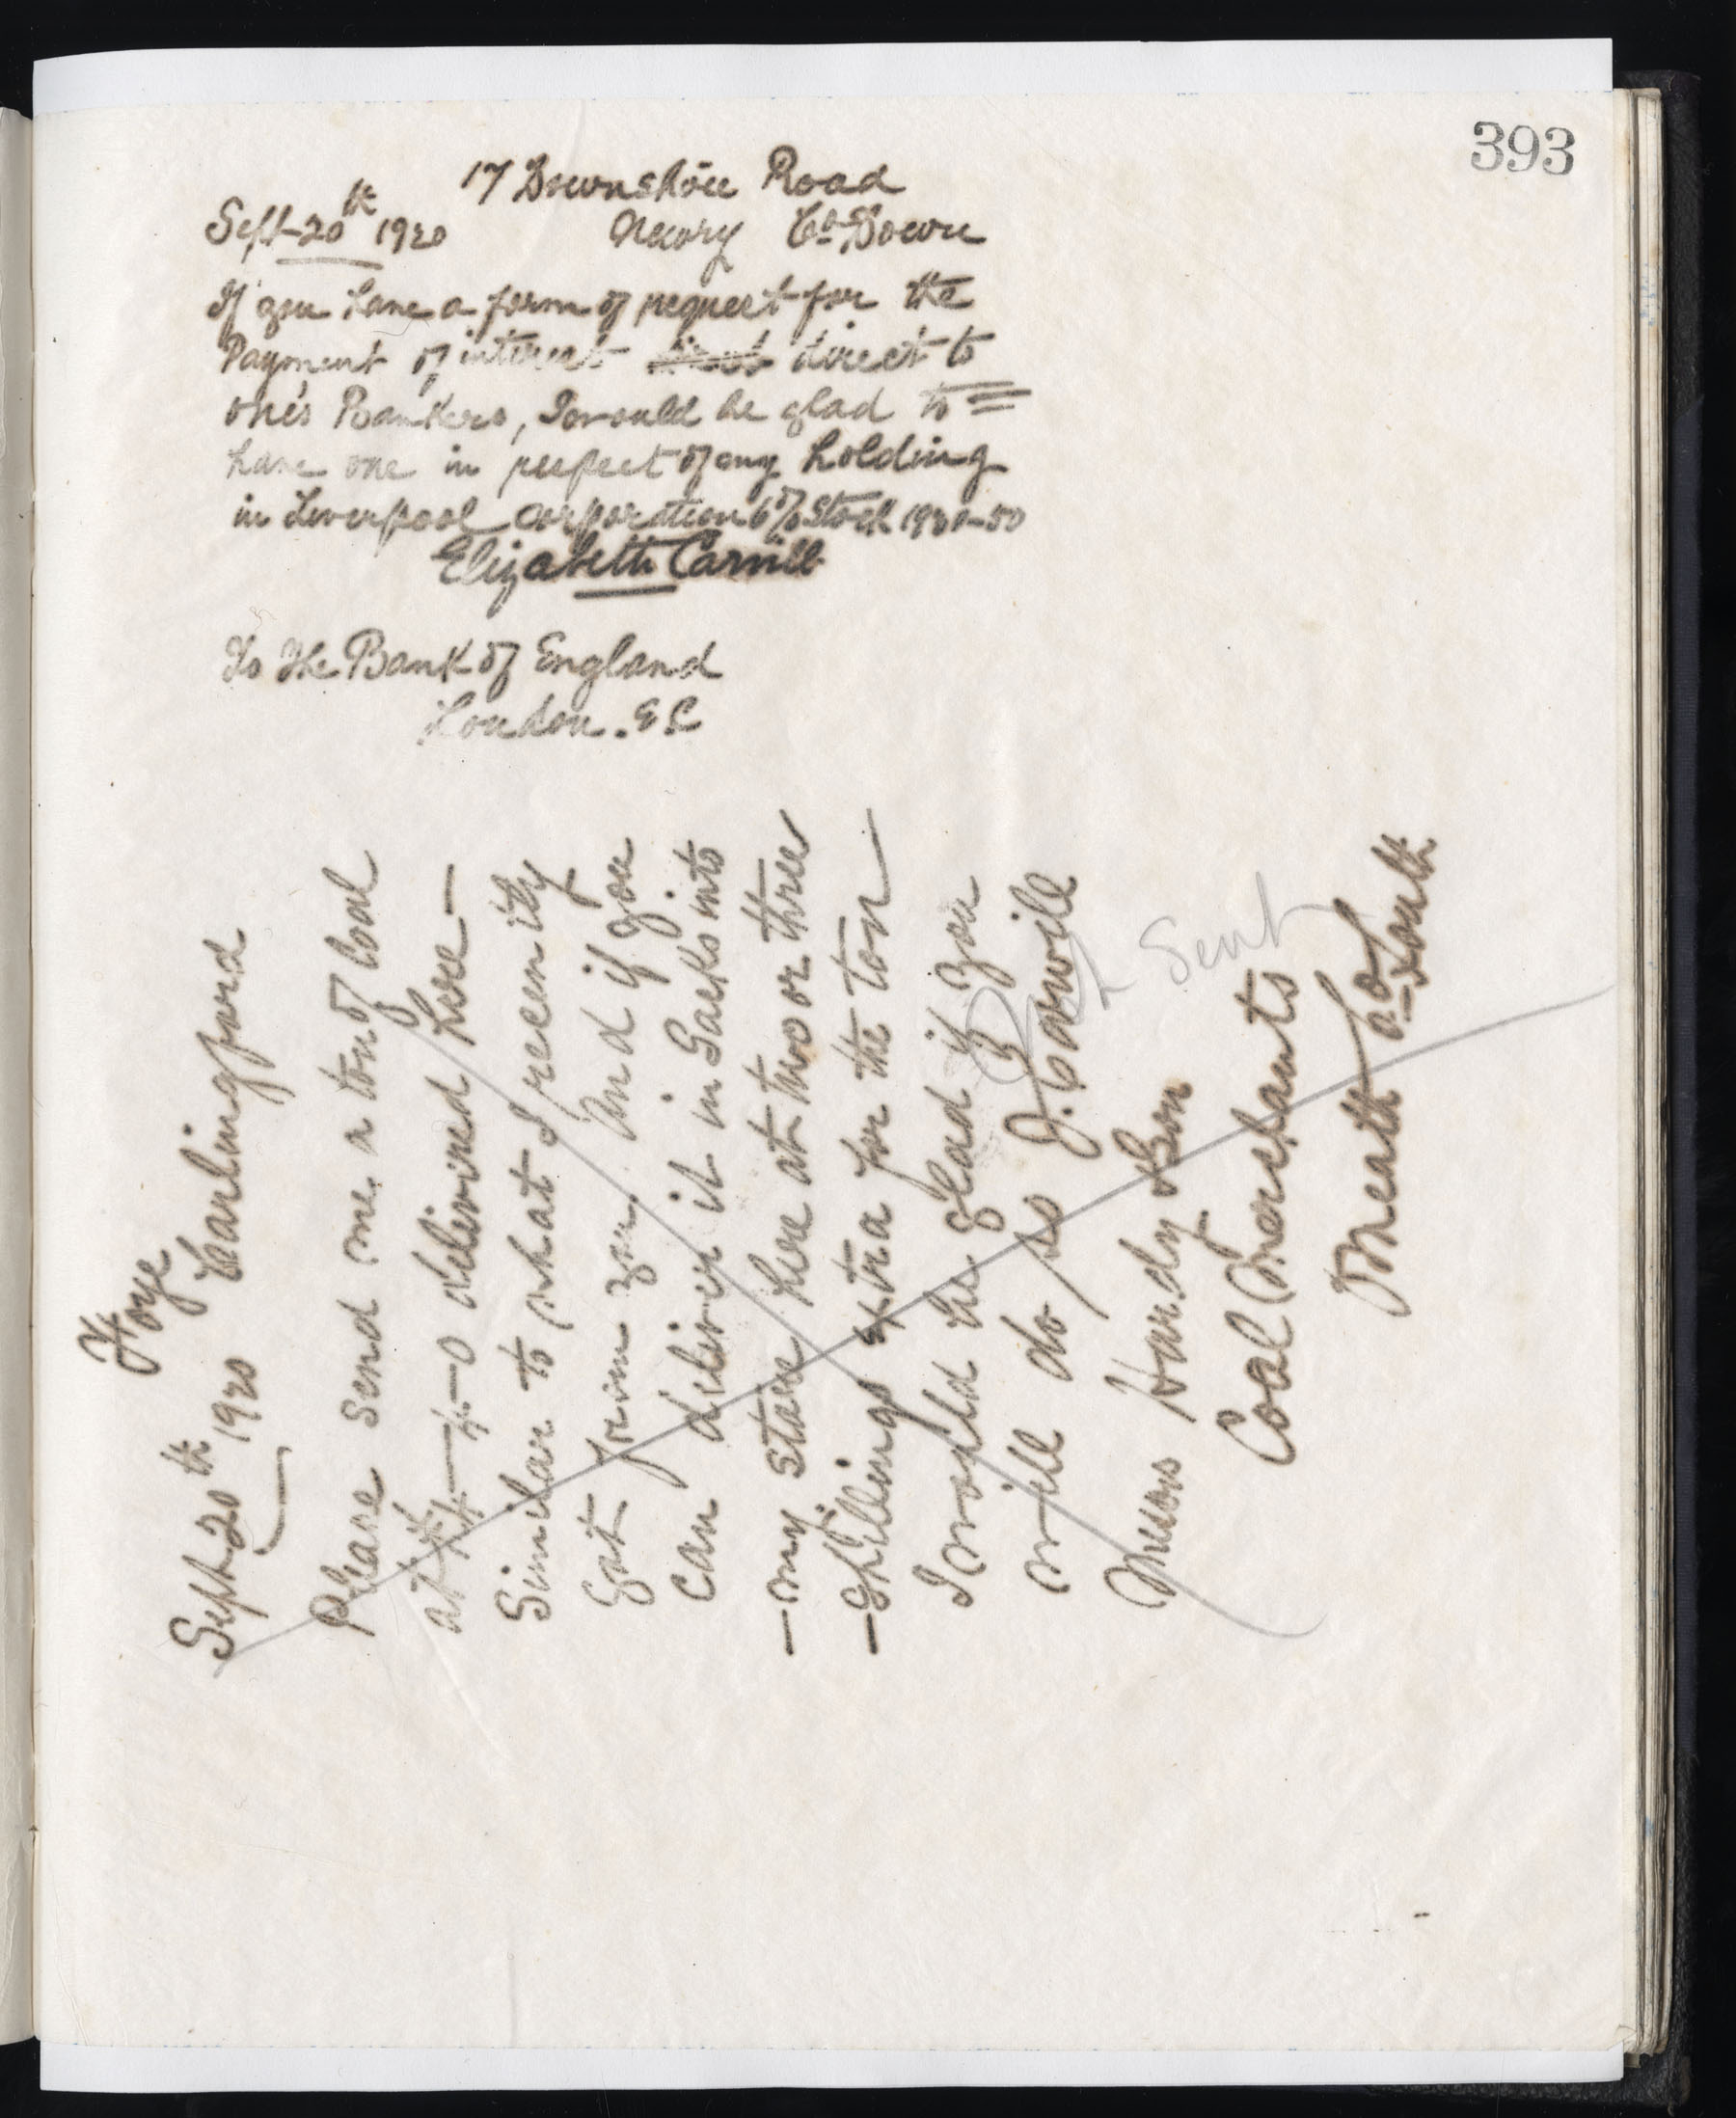 393
17 Downshire Road
Sept 20th 1920 Newry Co. Down
If you have a form of request for the
Payment of interest direct to
one's Bankers, I would be glad to
have one in respect of my holding
in Liverpool Corporation 6% Stock 1930-50
Elizabeth Carvill
To The Bank of England
London. E C
Foye
Sept 20th 1920 Carlingford
Please send me a ton of Coal
at £4-4-0 delivered here—
Similar to what I recently
got from you. And if you
can deliver it in Sacks into
—my store here at two or three
—Shillings extra for the ton
I would be glad if you
will do so J. Carvill
Messrs Hardy & Son
Coal Merchants
Omeath Co. Louth
Not Sent